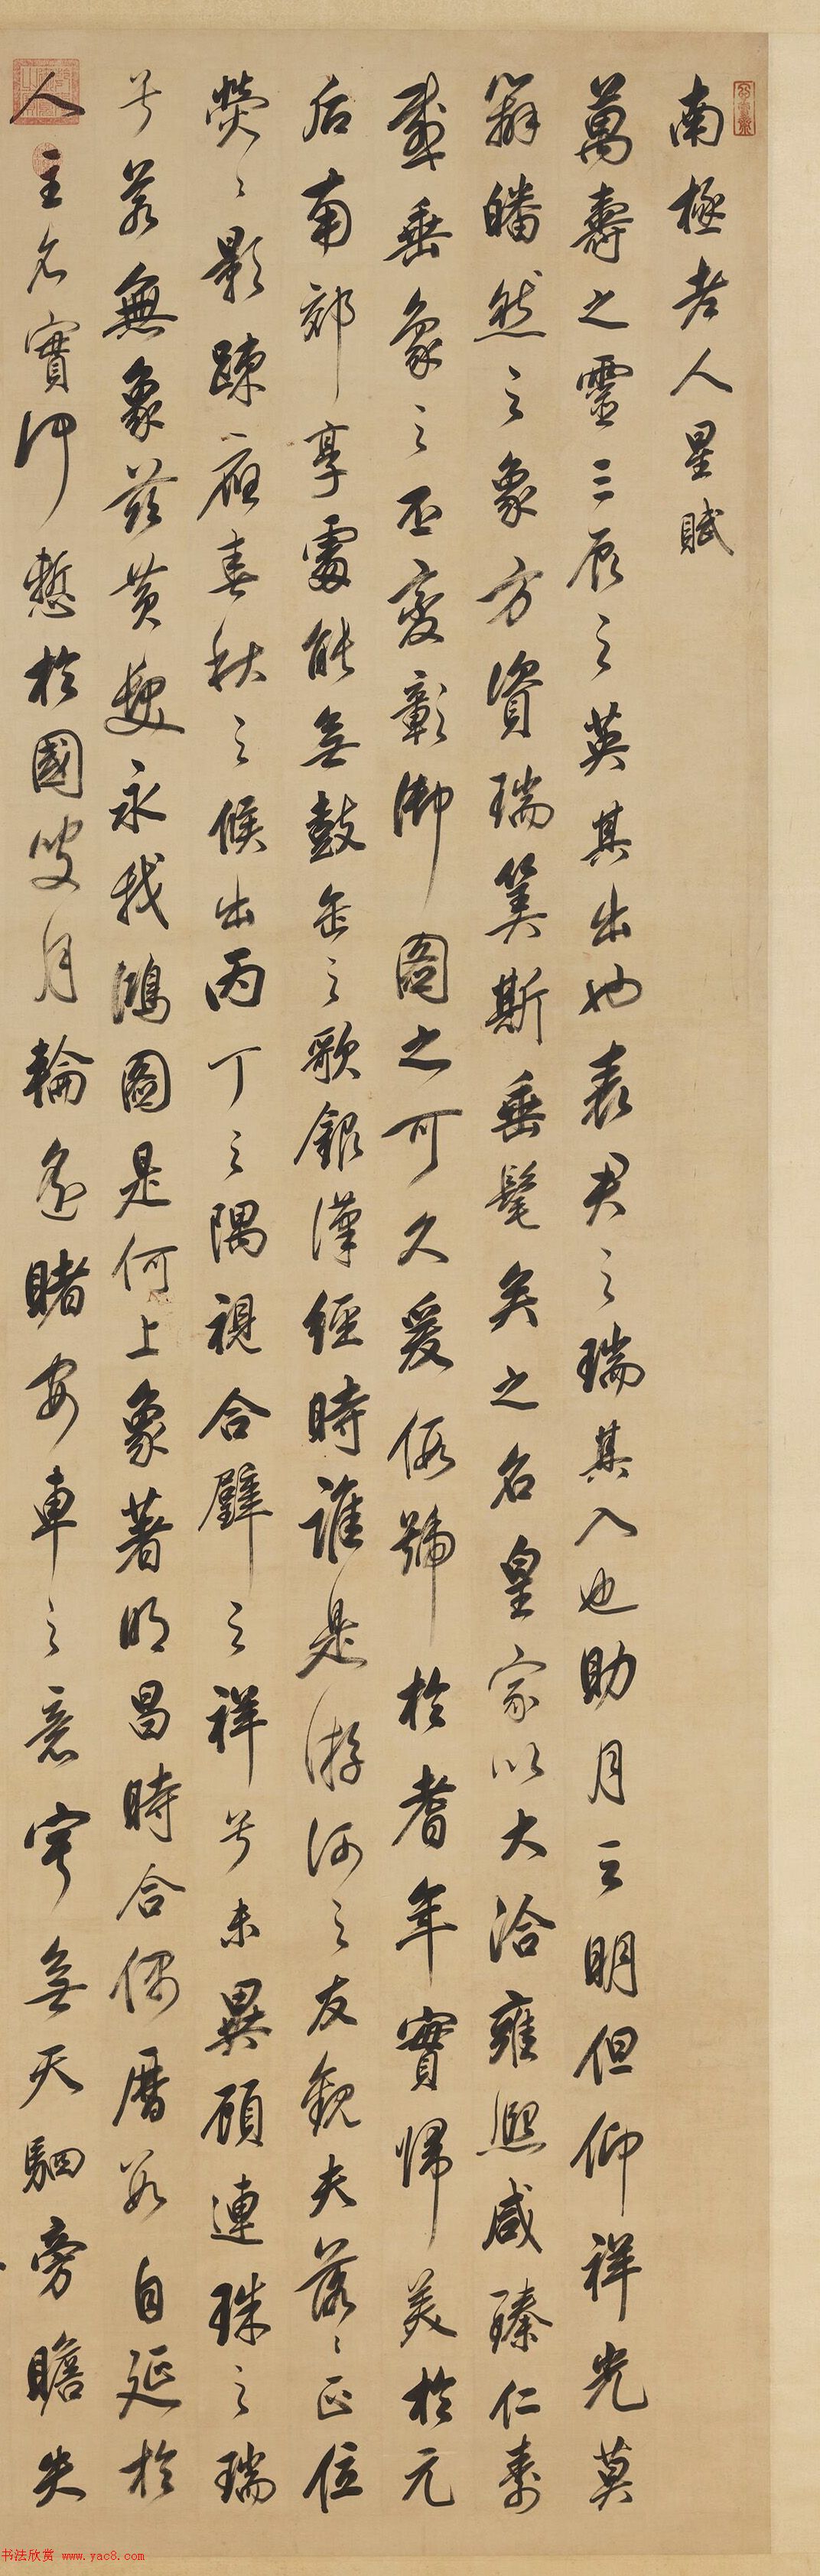 南極老人星賦
萬壽之靈三辰之英其出也表君之瑞其入也助月之明但仰祥光莫
辯皤然之象方資瑞筭斯垂髦矣之名皇家以大洽雍熙咸臻仁壽
感垂象之丕變彰御圖之可久爰假號於耆年實歸美於元
后南郊享處能無鼓缶之歌銀漢經時誰是游河之友觀夫落々正位
熒々影疎應春秋之候出丙丁之隅視合璧之祥芒未異顧連珠之瑞
芒若無象茲黃髮永我鴻圖是何上象著明昌時合偶曆數自延於
人主名實何慙於國叟月輪遙睹安車之意寧無天駟旁瞻失
书法欣赏 www.yac8.com